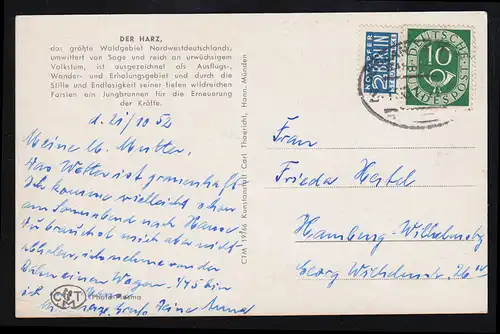 DER HARZ,
das größte Waldgebiet Nordwestdeutschlands,
umwittert von Sage und reich an urwüchsigem
Volkstum, ist ausgezeichnet als Ausflugs-,
Wander- und Erholungsgebiet und durch die
Stille und Endlosigkeit seiner tiefen wildreichen
Forsten ein Jungbrunnen für die Erneuerung
der Kräfte.
d. 21/10 52
Meine lb. Mutter.
Das Wetter ist grauenhaft
Ich komme vielleicht schon
am Sonnabend nach Hause
Du brauchst mich aber nicht
abholen, ich nehme von der
Bahn einen Wagen. 4 45 bin
ich
Gruß Deine
CTM
Photo
CTM 19/66 Kunstanstalt Carl Thoericht, Hann. Münden
NOTOPFER
2 BERLIN
STEUERMARKE
DEUTSCHE
10
BUNDESPOST
Frau
Frieda Hertel
Hamburg-Wilhelmsbg
Georg Wilhelmstr.